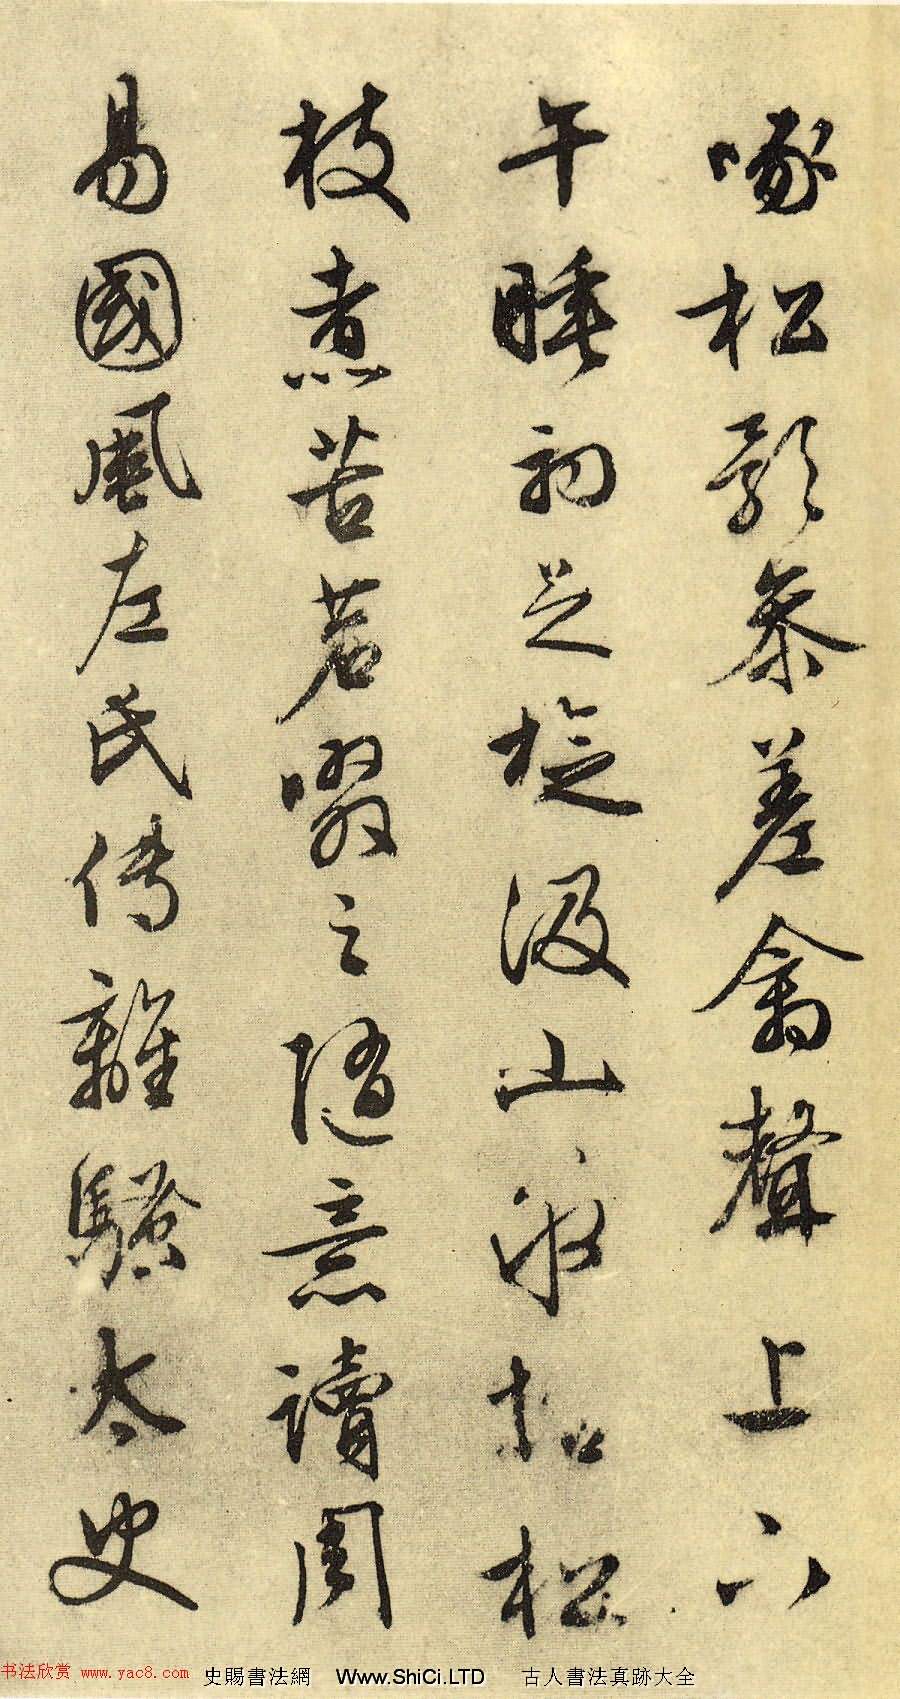 啄松影參差禽聲上下
午睡初足旋汲山泉拾松
枝煮苦茗啜之隨意讀周
易國風左氏傳離騷太史
书法欣赏 www.yac8.com 史賜書法網 Www.ShiCi.LTD 古人書法真跡大全